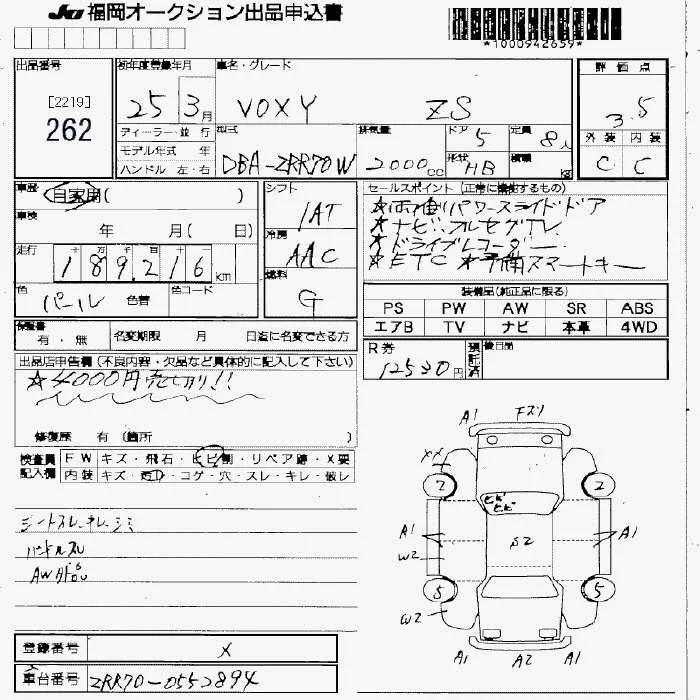 JU 福岡オークション出品申込書
*1000942659*
出品番号
[2219]
262
初年度登録年月
25 3月
車名・グレード
VOXY ZS
評価点
3.5
外装 内装
C C
ディーラー・並行
モデル年式 年
ハンドル 左・右
型式
DBA-ZRR70W
排気量
2000cc
ドア
5
定員
8人
形状
HB
積載
kg
車歴
自家用( )
車検
年 月( 日)
走行
189216KM
色
パール 色替
色コード
シフト
IAT
冷房
AAC
燃料
G
セールスポイント(正常に機能するもの)
☆両側パワースライドドア
☆ナビ フルセグTV
☆ドライブレコーダー
☆ETC ☆予備スマートキー
装備品(純正品に限る)
PS PW AW SR ABS
エアB TV ナビ 本革 4WD
保証書
有・無
名変期限 月 日迄に名変できる方
R券
12530円
預託済
後日品
出品店申告欄(不良内容・欠品など具体的に記入して下さい)
☆4000円売切り!!
修復歴 有(箇所 )
検査員記入欄
FW キズ・飛石・ヒビ割・リペア跡・X要
内装 キズ・凹・コゲ・穴・スレ・キレ・破レ
シートスレ・キレ・シミ
ハンドルスレ
登録番号
X
車台番号
ZRR70-0552894
A1 Fスリ
XX
2 2
ヒビ
ヒビ
A1 S2 A1
W2
5 5
W2
A1 A2 A1